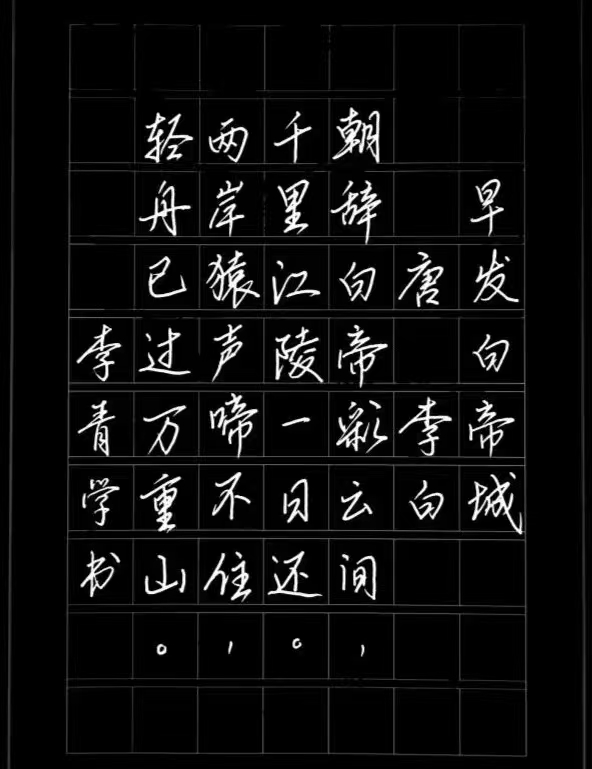 早发白帝城
唐 李白
朝辞白帝彩云间，
千里江陵一日还。
两岸猿声啼不住，
轻舟已过万重山。
李青学书